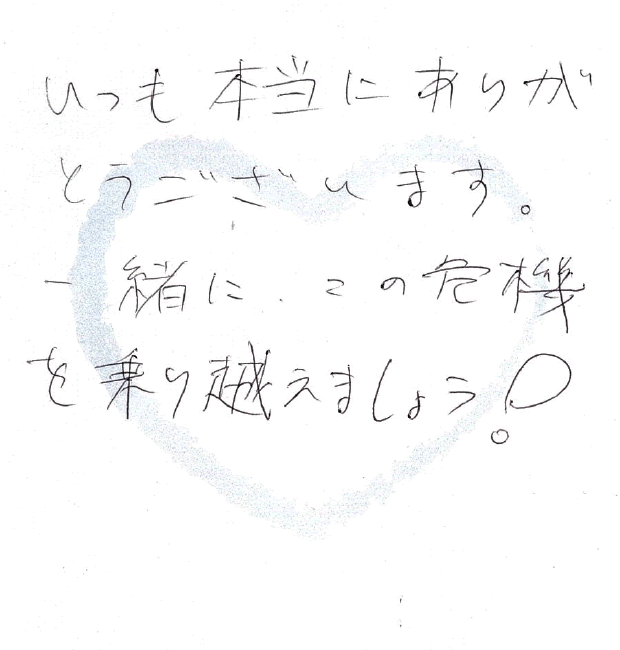 いつも本当にありが
とうございます。
一緒に、この危機
を乗り越えましょう!